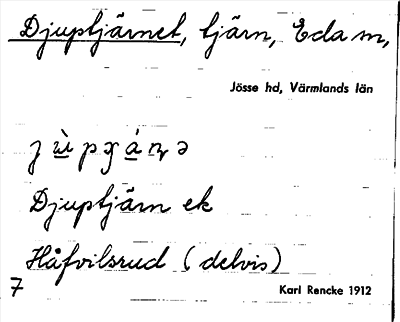 Djuptjärnet, tjärn, Eda m,
Jösse hd, Värmlands län
Djuptjärn ek
Håfvilsrud (delvis)
7
Karl Rencke 1912